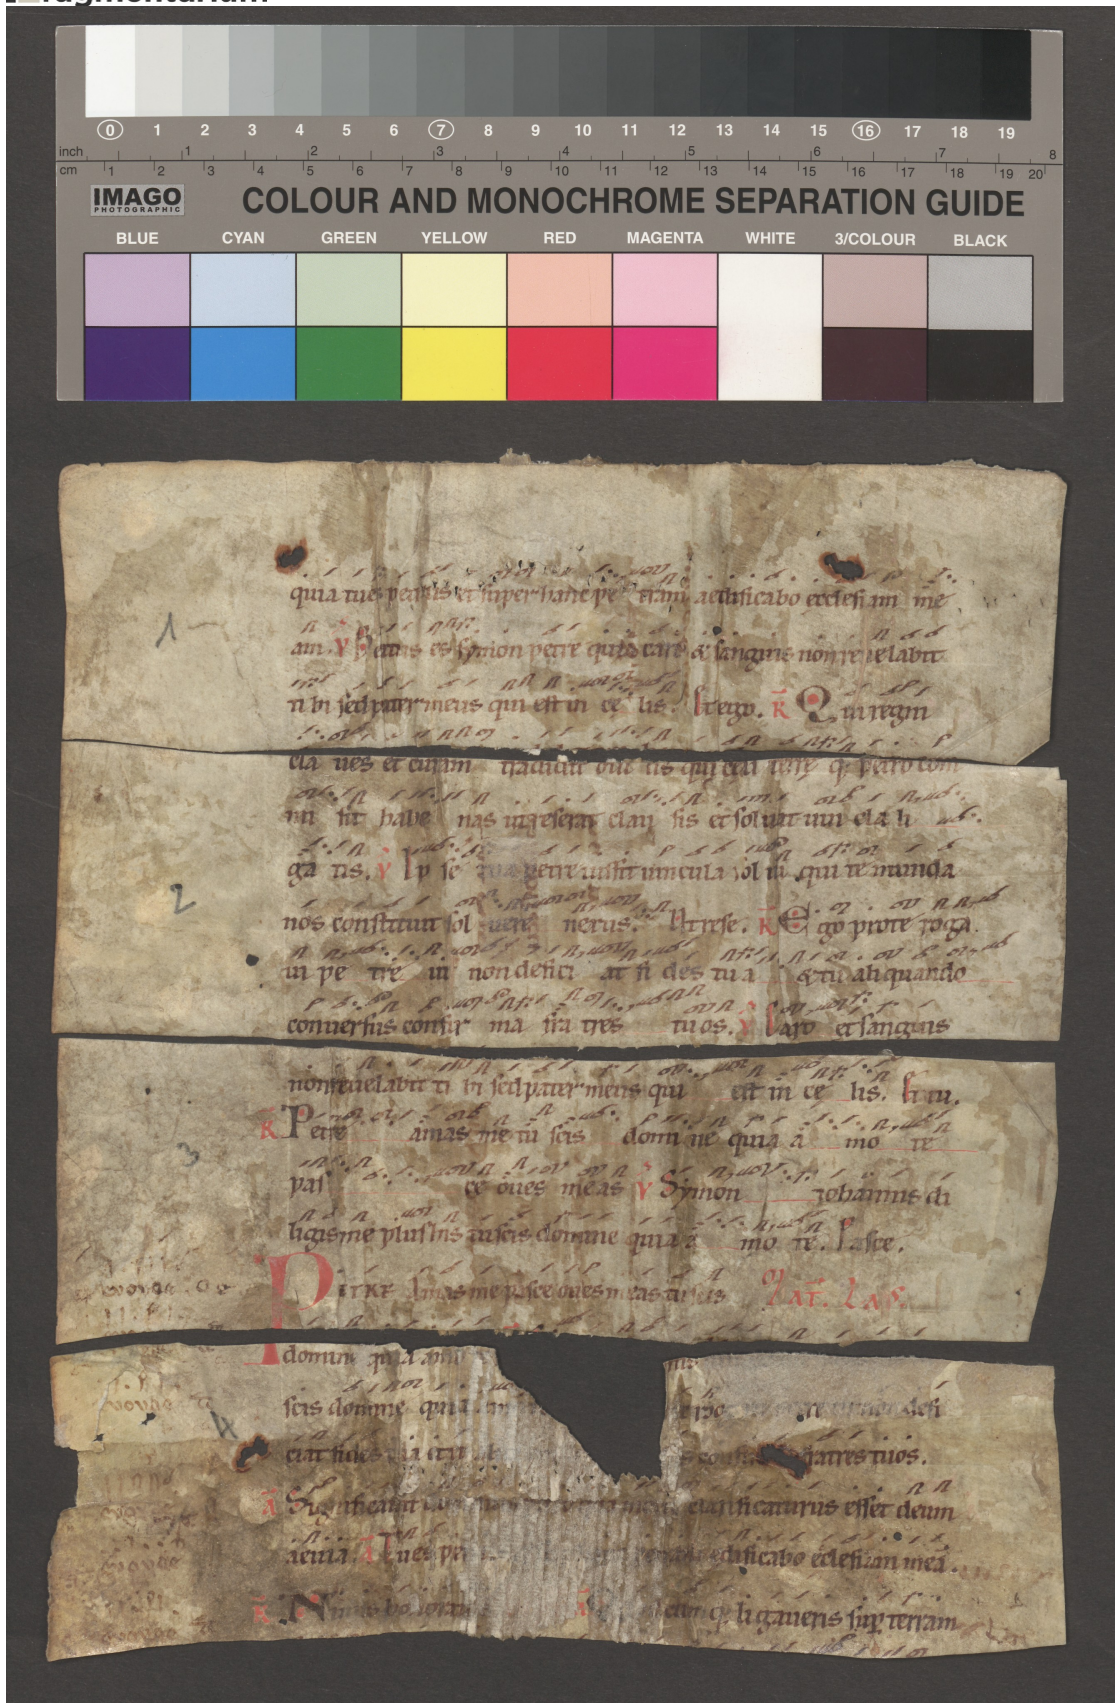 fragmentarium
0 1 2 3 4 5 6 7 8 9 10 11 12 13 14 15 16 17 18 19
inch 1 2 3 4 5 6 7 8
cm 1 2 3 4 5 6 7 8 9 10 11 12 13 14 15 16 17 18 19 20
IMAGO PHOTOGRAPHIC COLOUR AND MONOCHROME SEPARATION GUIDE
BLUE CYAN GREEN YELLOW RED MAGENTA WHITE 3/COLOUR BLACK
quia tu es petrus et super hanc pe tram aedificabo ecclesiam me
1
am. V Beatus es symon petre quia caro & sanguis non revelabit
ti bi sed pater meus qui est in ce lis. Et ego. R Qui regni
cla ves et curam tradidit ovi lis qui celi terre q; petro com
mi sit habe nas ut reserat clau sis et solvat vin cla li
ga tis. V Ip se petre iussit vincula sol vi qui te munda
2
nos constituit sol vere nervus. Ut rese. R Ego pro te roga
vi pe tre ut non defici at fi des tu a & tu aliquando
conversus confir ma fra tres tuos. V Caro et sanguis
non revelabit ti bi sed pater meus qui est in ce lis. Et tu.
R Petre amas me tu scis domi ne quia a mo te
3
pas ce oves meas V Symon iohannis di
ligis me plus his tu scis domine quia a mo te. Pasce.
PETRE amas me pasce oves meas tu scis MAT. LAS.
domine quia amo
scis domine quia defi
4
ciat fides tua et tu fratres tuos.
A Significavit clarificaturus esset deum
aevia. A Tu es pe edificabo eclesiam mea.
R Nimis ho cumq; ligaveris sup terram